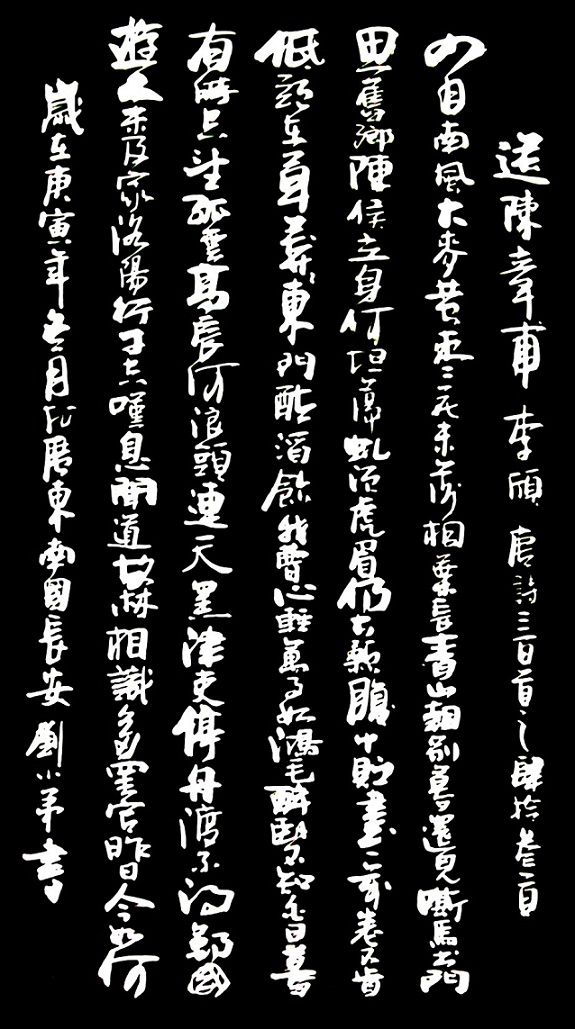 送陳章甫 李頎 唐詩三百首之肆拾叁首
四月南風大麥黃枣花未落桐葉長青山朝別暮還見嘶馬出門
思舊鄉陳侯立身何坦蕩虬須虎眉仍大顙腹中貯書一萬卷不肯
低頭在草莽東門酤酒飲我曹心輕萬事如鴻毛醉臥不知白日暮
有時空望孤雲高長河浪頭連天黑津吏停舟渡不得鄭國
遊人未及家洛陽行子空嘆息聞道故林相識多罷官昨日今如何
歲在庚寅年五月於廣東南國長安劉小弟書